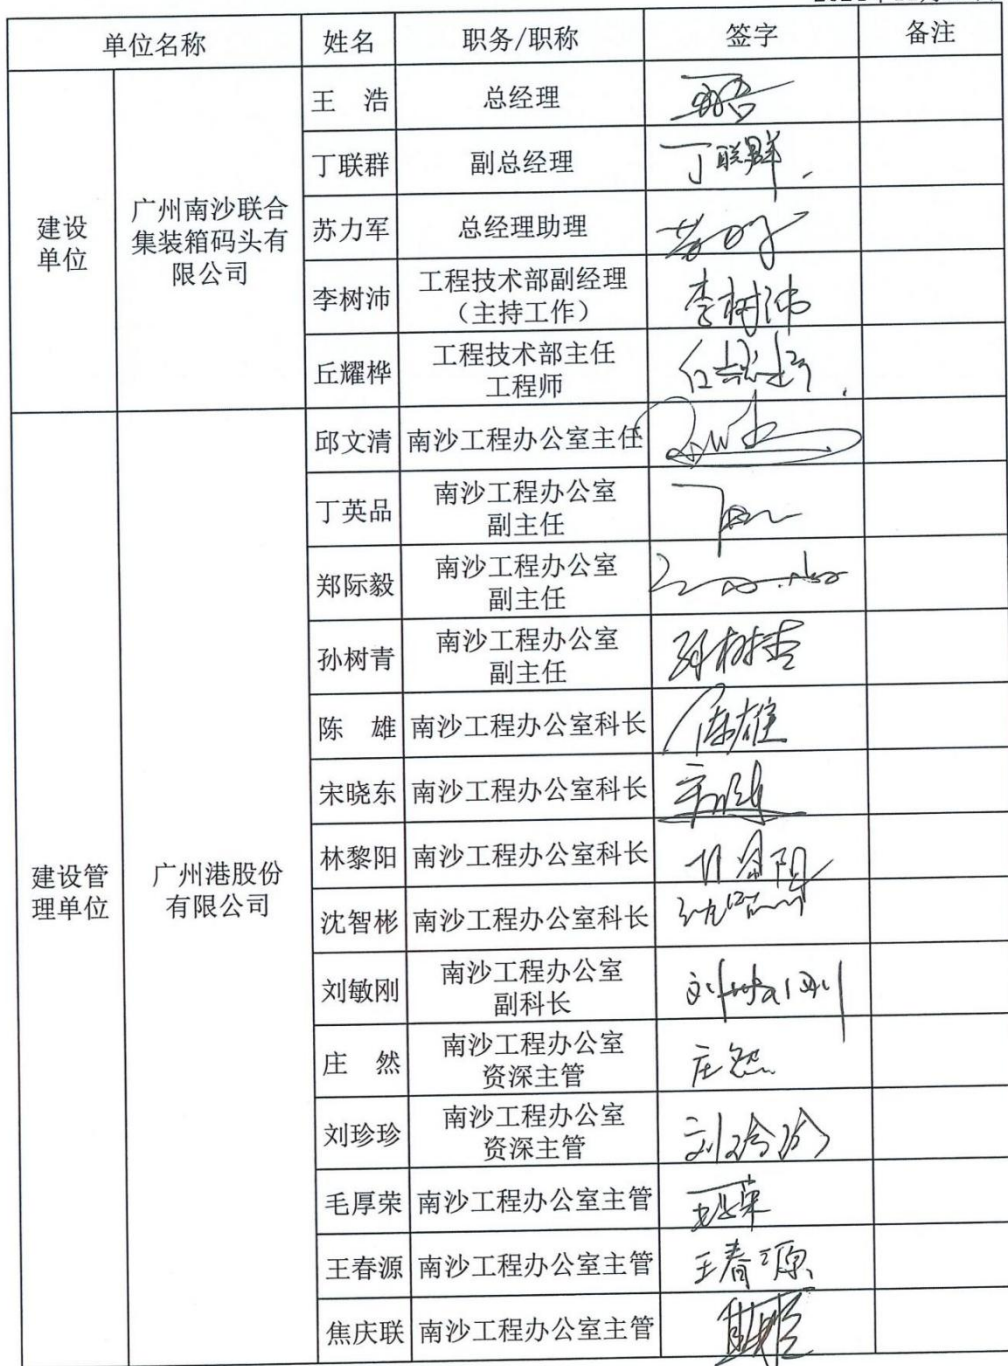 单位名称 姓名 职务/职称 签字 备注
建设
单位
广州南沙联合
集装箱码头有
限公司
王 浩 总经理
丁联群 副总经理 丁联群
苏力军 总经理助理
李树沛 工程技术部副经理
（主持工作） 李树沛
丘耀桦 工程技术部主任
工程师
建设管
理单位
广州港股份
有限公司
邱文清 南沙工程办公室主任
丁英品 南沙工程办公室
副主任
郑际毅 南沙工程办公室
副主任
孙树青 南沙工程办公室
副主任 孙树青
陈 雄 南沙工程办公室科长 陈雄
宋晓东 南沙工程办公室科长
林黎阳 南沙工程办公室科长
沈智彬 南沙工程办公室科长
刘敏刚 南沙工程办公室
副科长 刘敏刚
庄 然 南沙工程办公室
资深主管 庄然
刘珍珍 南沙工程办公室
资深主管 刘珍珍
毛厚荣 南沙工程办公室主管
王春源 南沙工程办公室主管 王春源
焦庆联 南沙工程办公室主管